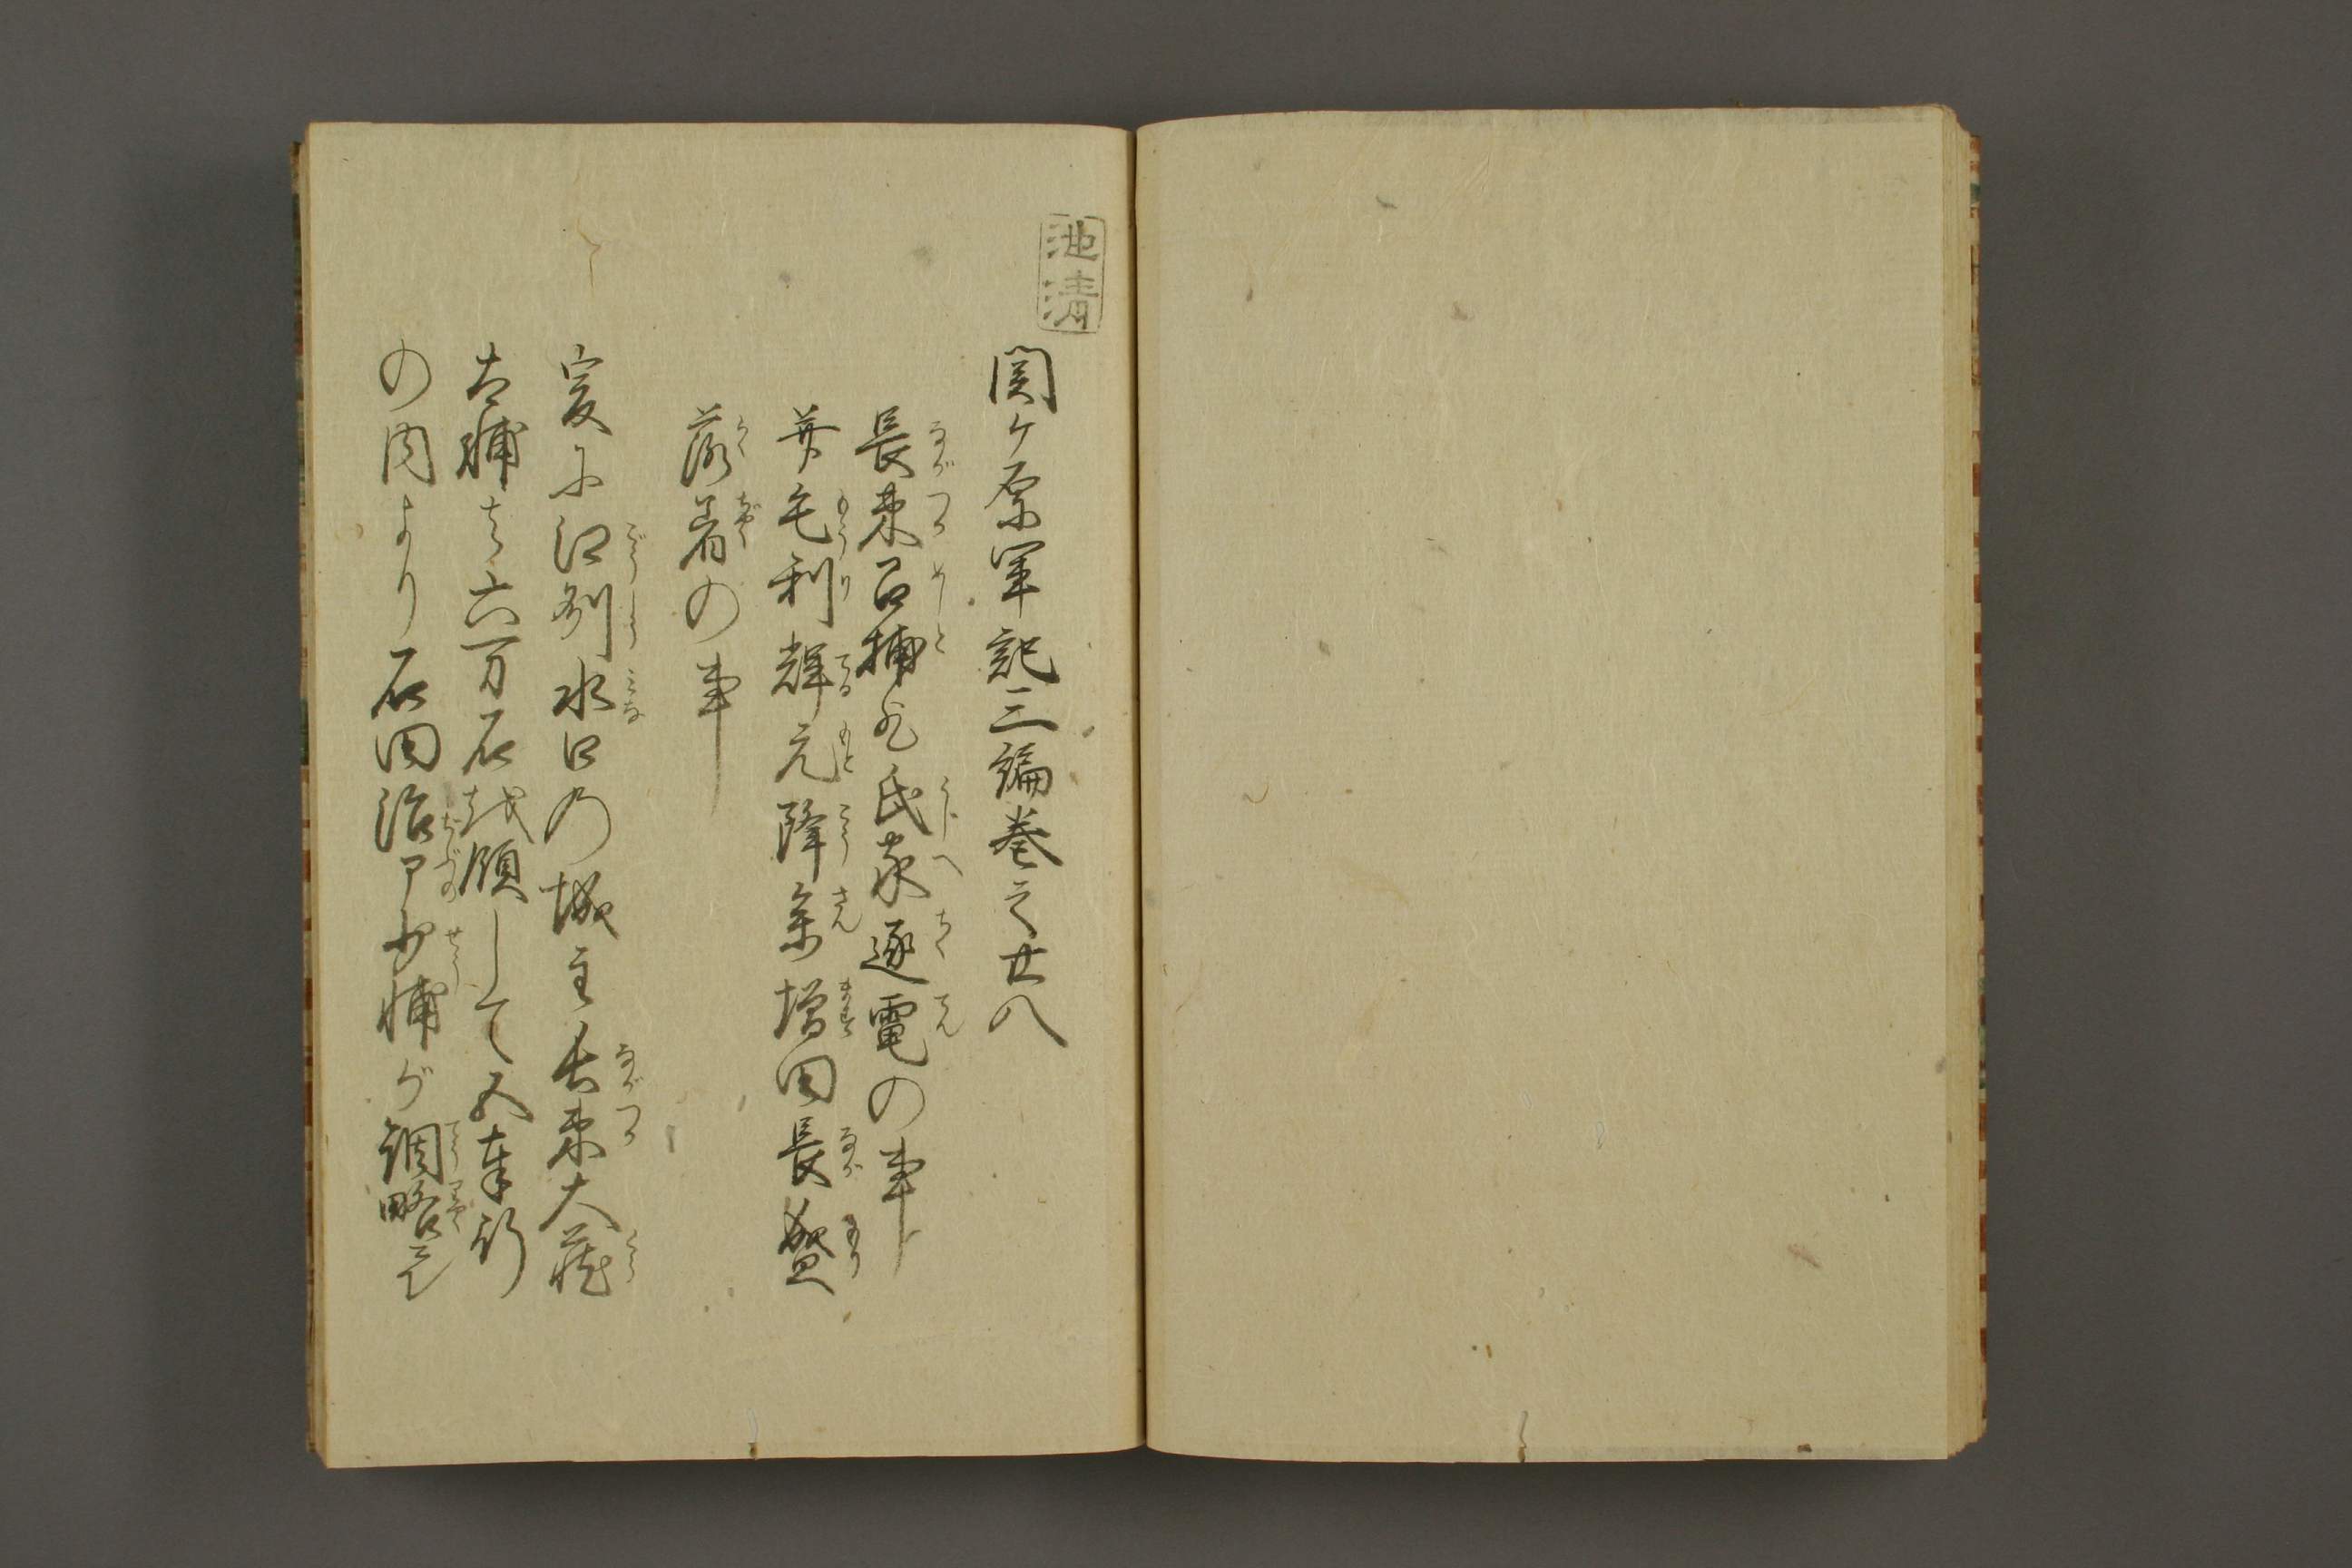 池清
関ケ原軍記三編巻之廿八
長束召捕并氏家逐電の事
并毛利輝元降参増田長盛
落着の事
爰に江刕水口の城主長束大蔵
太輔は六万石を領して五奉行
の内より石田治部少輔が調略を